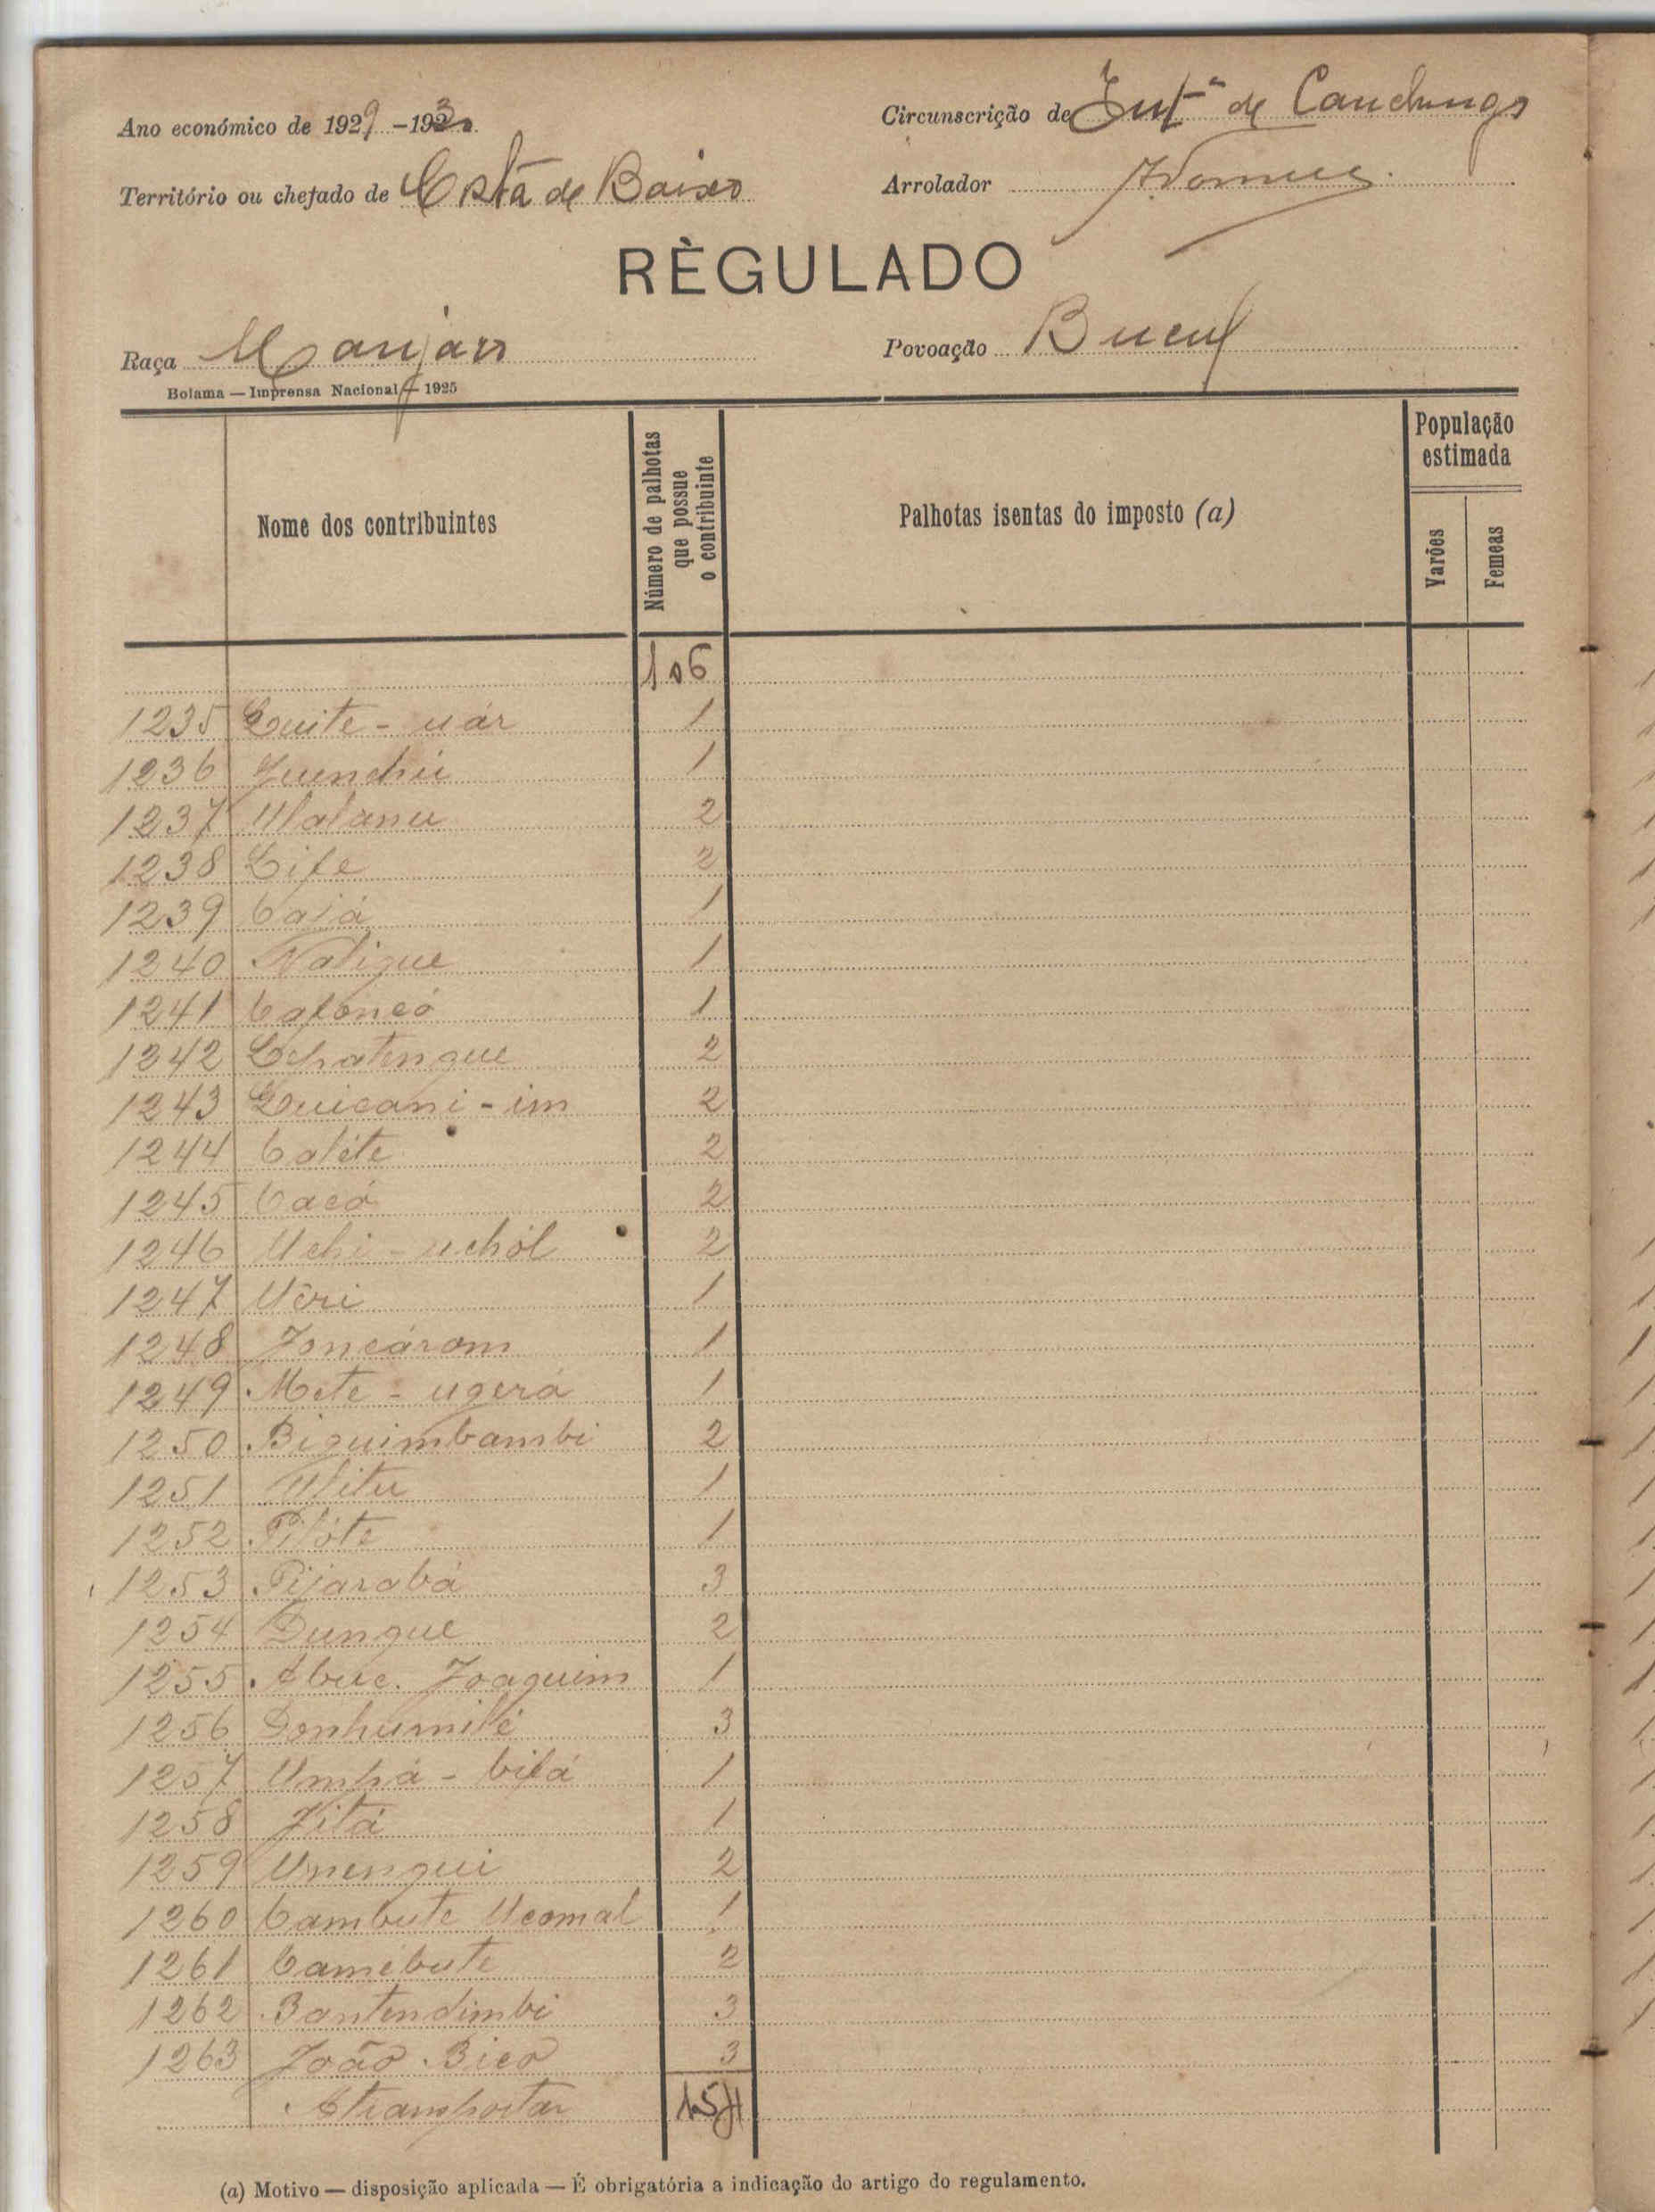 Ano económico de 1929-1930
Circunscrição de Int.ª de Canchungo
Território ou chefado de Costa de Baixo
Arrolador
RÈGULADO
Raça Manjaco
Povoação Bucul
Bolama — Imprensa Nacional — 1925
Nome dos contribuintes
Número de palhotas que possue o contribuinte
Palhotas isentas do imposto (a)
População estimada
Varões
Femeas
106
1235 Quite-uár 1
1236 Juenchú 1
1237 Ulolanu 2
1238 Life 2
1239 Cajá 1
1240 Nalique 1
1241 Cafoncó 1
1242 Chatengue 2
1243 Quicani-im 2
1244 Caléte 2
1245 Cacó 2
1246 Uchi-uchól 2
1247 Uôri 1
1248 Joncárom 1
1249 Mete-ugerá 1
1250 Biquimbambi 2
1251 Ulitu 1
1252 Pilóte 1
1253 Pijarabá 3
1254 Dungue 2
1255 Abuc. Joaquim 1
1256 Donhumilé 3
1257 Umpá-bifá 1
1258 Jitá 1
1259 Unengui 2
1260 Cambute Ucomal 1
1261 Camébute 2
1262 Bantendimbi 3
1263 João Bico 3
A transportar 154
(a) Motivo — disposição aplicada — É obrigatória a indicação do artigo do regulamento.